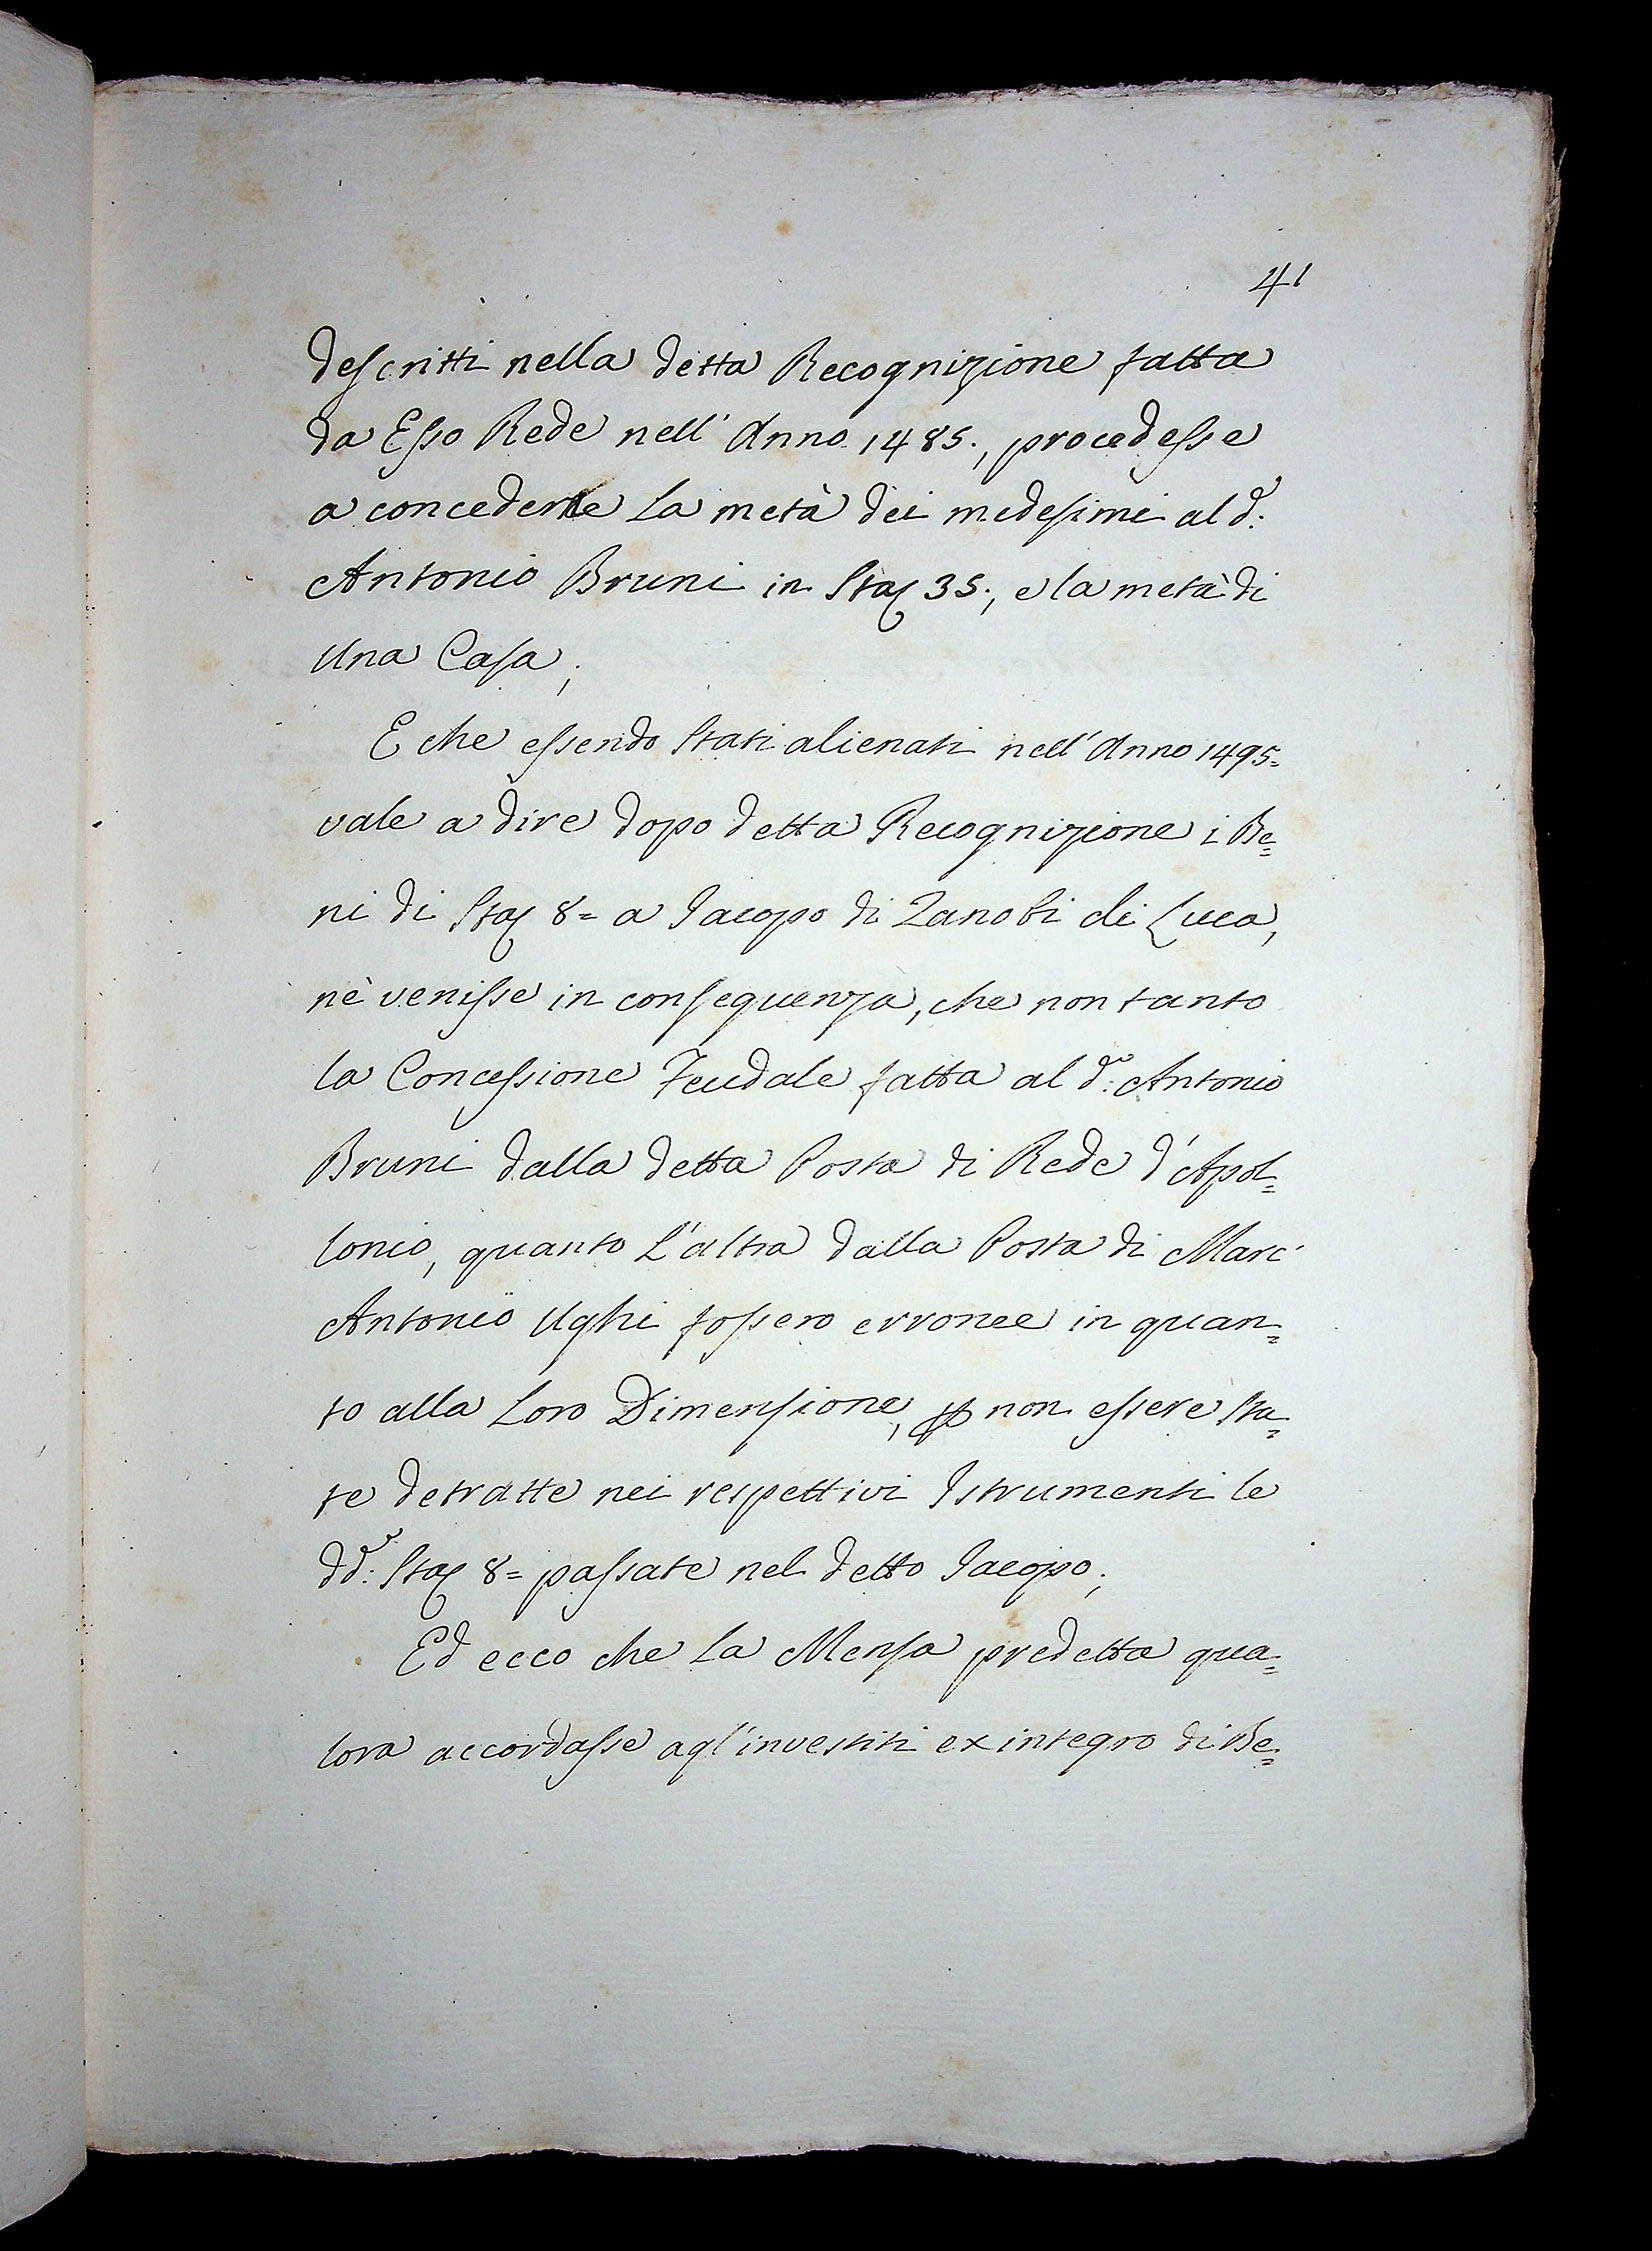 41
descritti nella detta Recognizione fatta
da Esso Rede nell' Anno 1485., procedesse
a concederne La metà dei medesimi al d.º
Antonio Bruni in Staȷ 35., e la metà di
una Casa;
E che essendo stati alienati nell' Anno 1495=
vale a dire dopo detta Recognizione i Be=
ni di Staȷ 8= a Jacopo di Zanobi di Luca,
nè venisse in conseguenza, che non tanto
la Concessione Feudale fatta al d.º Antonio
Bruni dalla detta Posta di Rede d'Apol=
lonio, quanto L'altra dalla Posta di Marc'
Antonio Ughi fossero erronee in quan=
to alla Loro Dimensione, ꝑ non essere sta=
te detratte nei respettivi Istrumenti le
dd.e Staȷ 8= passate nel detto Jacopo;
Ed ecco che La Mensa predetta qua=
lora accordasse agl'investiti ex integro di Be=